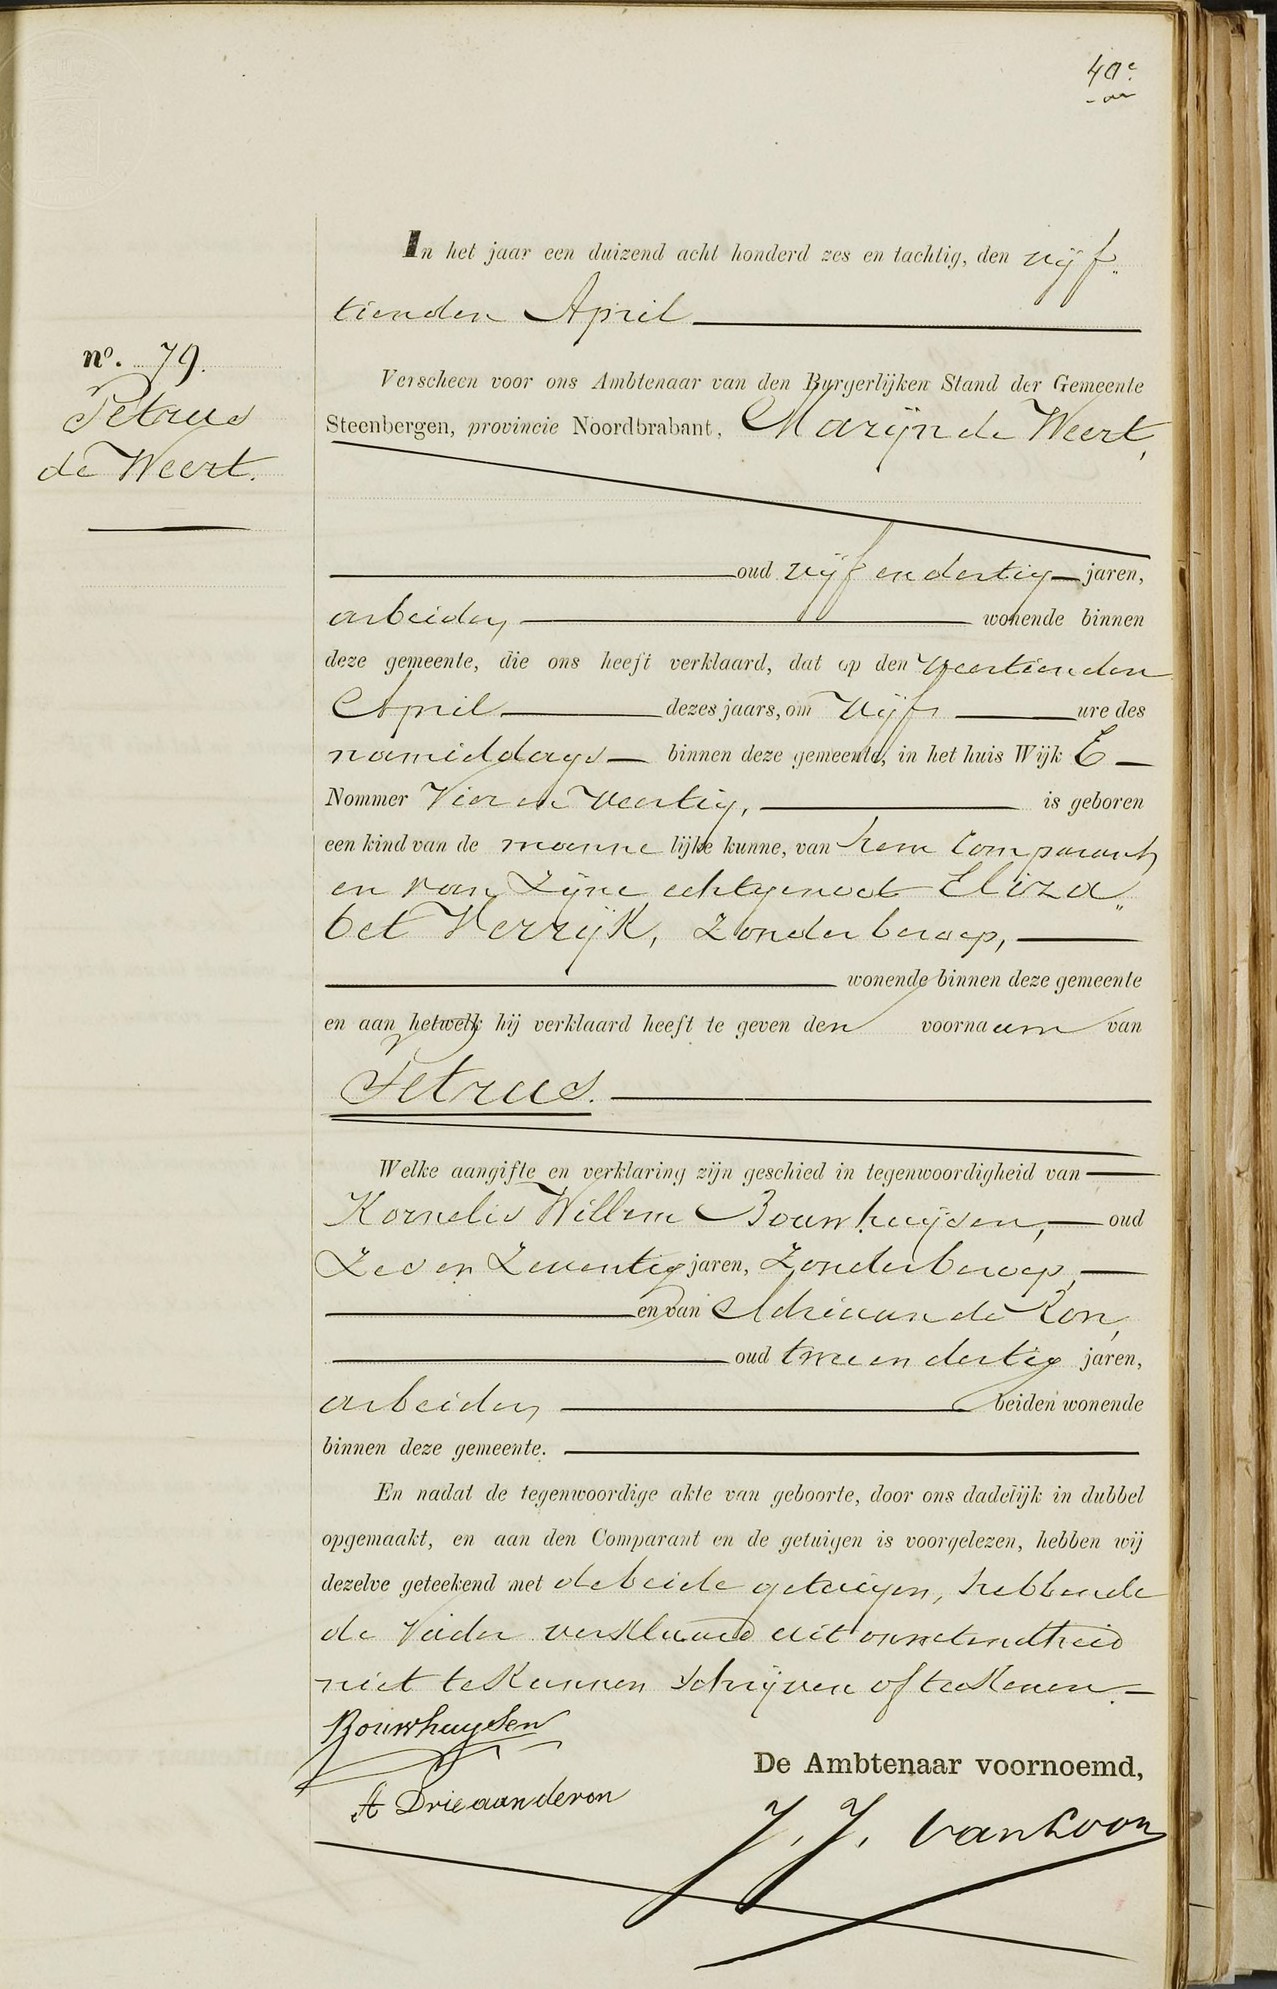 40e
In het jaar een duizend acht honderd zes en tachtig, den vijf„
tienden April
no. 79.
Petrus
de Weert.
Verscheen voor ons Ambtenaar van den Burgerlijken Stand der Gemeente
Steenbergen, provincie Noordbrabant, Marijn de Weert,
oud vijf en dertig jaren,
arbeider wonende binnen
deze gemeente, die ons heeft verklaard, dat op den veertienden
April dezes jaars, om Vijf ure des
namiddags binnen deze gemeente, in het huis Wijk E
Nommer Vier en Veertig, is geboren
een kind van de manne lijke kunne, van hem Comparant
en van Zijne echtgenoot Eliza„
bet Verrijk, Zonder beroep,
wonende binnen deze gemeente
en aan hetwelk hij verklaard heeft te geven den voornaam van
Petrus.
Welke aangifte en verklaring zijn geschied in tegenwoordigheid van
Kornelis Willem Bouwhuijsen, oud
Zes en Zeventig jaren, Zonder beroep,
en van Adriaan de Ron,
oud twee en dertig jaren,
arbeider beiden wonende
binnen deze gemeente.
En nadat de tegenwoordige akte van geboorte, door ons dadelijk in dubbel
opgemaakt, en aan den Comparant en de getuigen is voorgelezen, hebben wij
dezelve geteekend met de beide getuigen, hebbende
de Vader verklaard uit onwetendheid
niet te Kunnen Schrijven of teekenen.
Bouwhuysen
A Drieaanderon
De Ambtenaar voornoemd,
J. J. van Loon